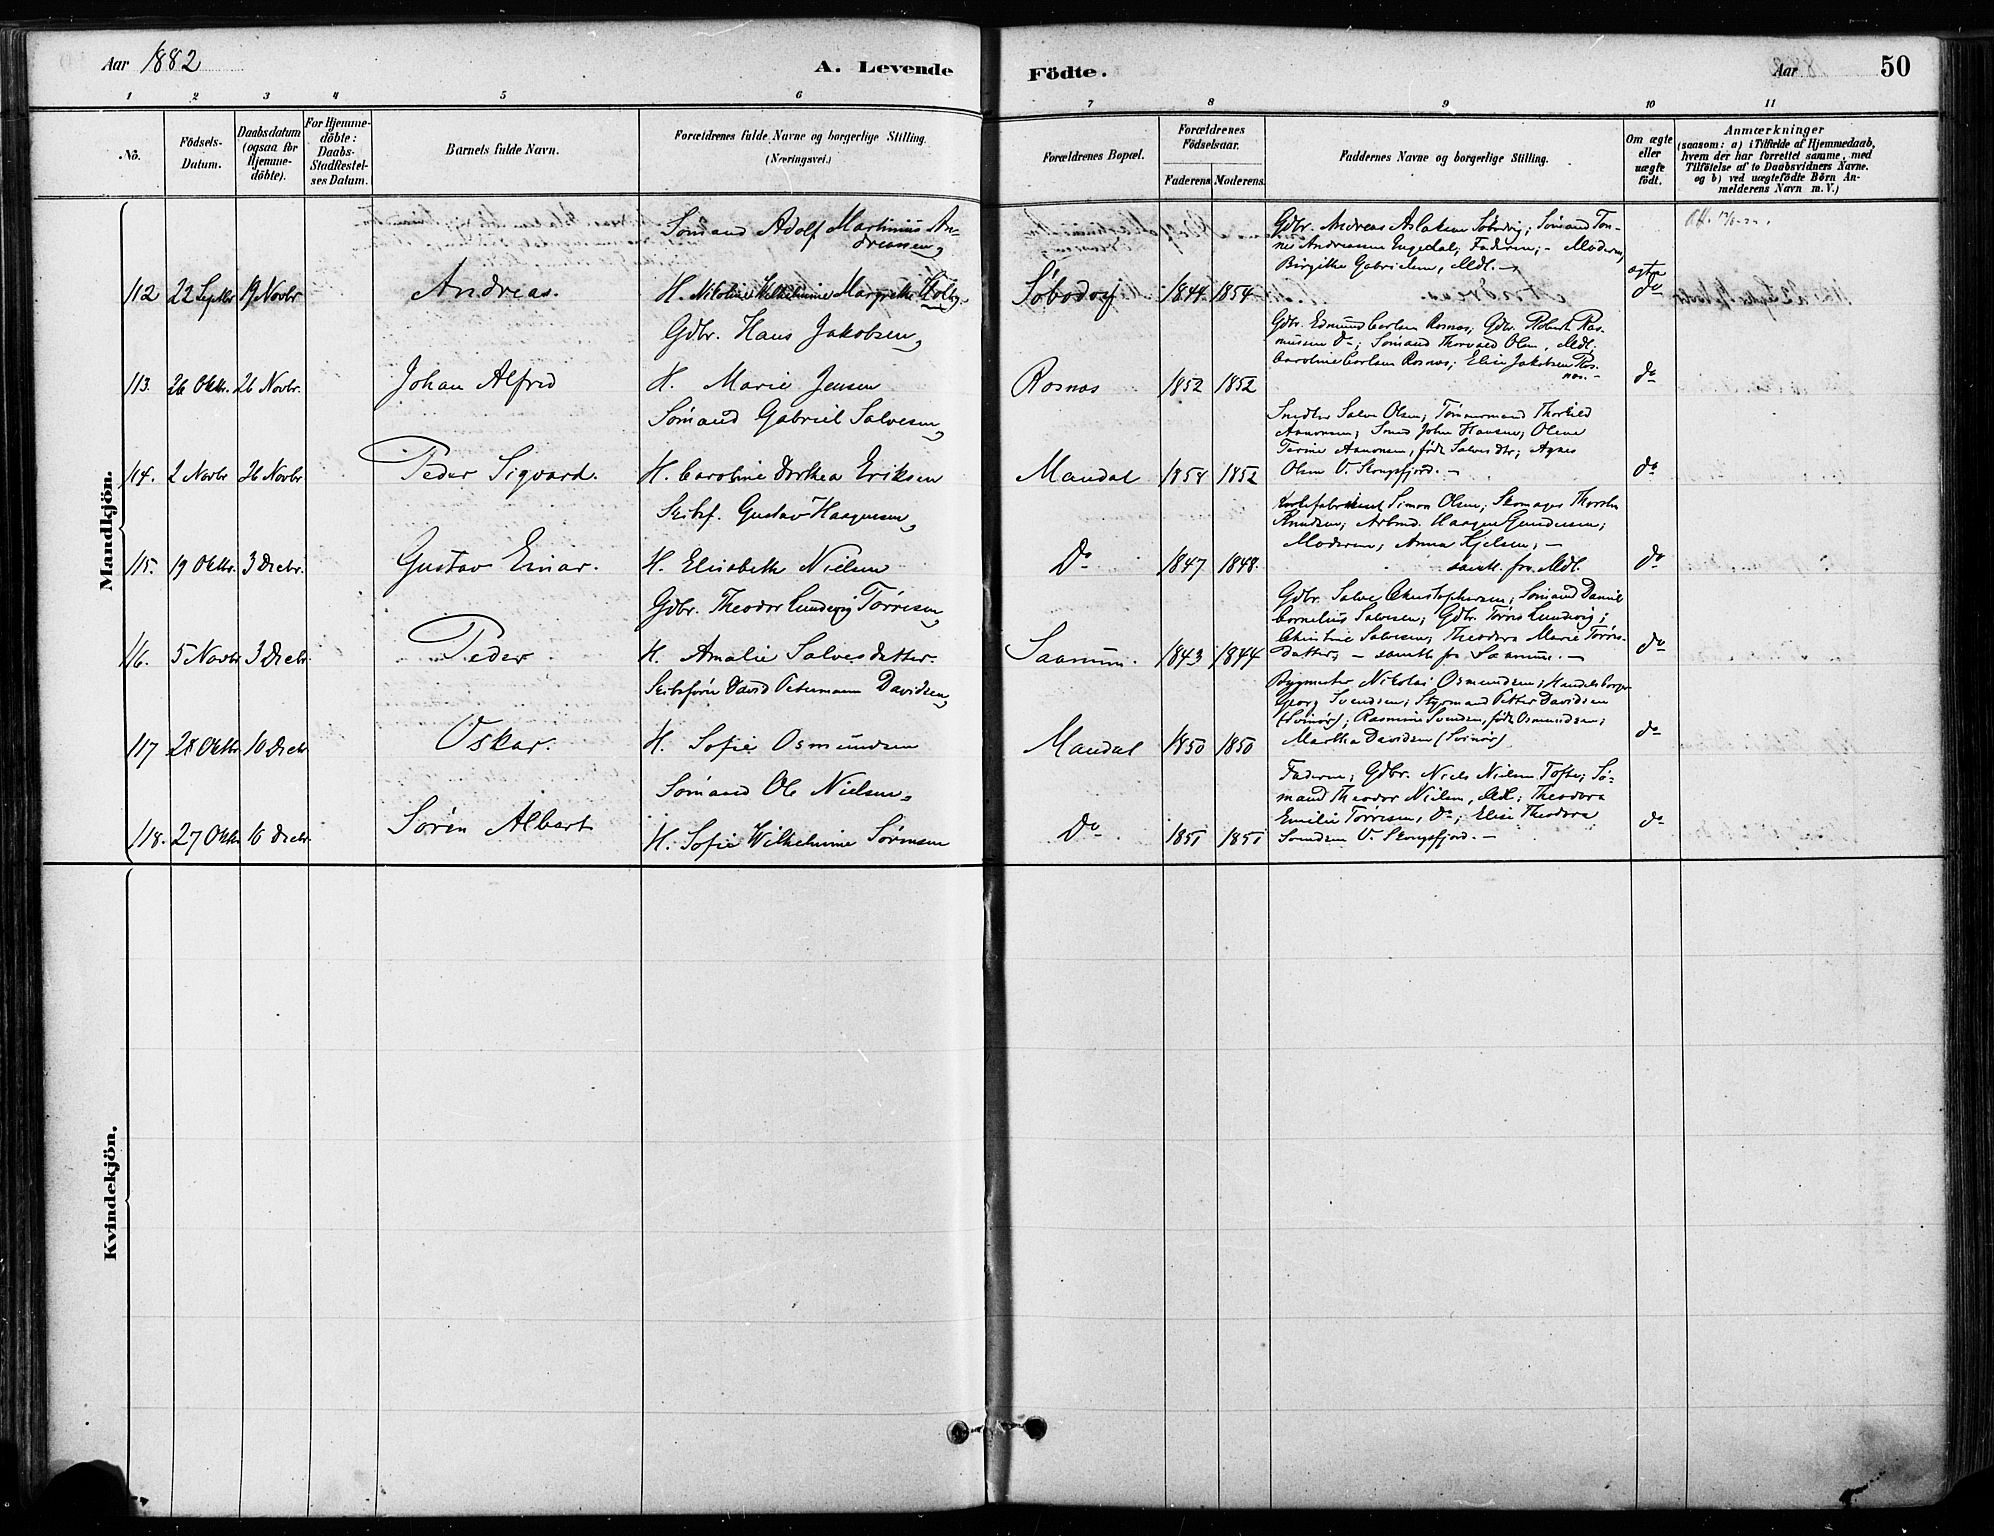 Aar 1882
A. Levende Födte.
Aar
50
1 2 3 4 5 6 7 8 9 10 11
No.
Födsels-
Datum.
Daabsdatum
(ogsaa for
Hjemme-
döbte).
For Hjemme-
döbte:
Daabs-
Stadfæstel-
ses Datum.
Barnets fulde Navn.
Forældrenes fulde Navne og borgerlige Stilling.
(Næringsvei.)
Forældrenes Bopæl.
Forældrenes
Födselsaar.
Faderens Moderens
Faddernes Navne og borgerlige Stilling.
Om ægte
eller
uægte
födt.
Anmærkninger
(saasom: a) i Tilfælde af Hjemmedaab,
hvem der har forrettet samme, med
Tilföielse af to Daabsvidners Navne.
og b) ved uægtefödte Börn An-
melderens Navn m. V.)
Mandkjön.
Sømand Adolf Martinius An-
dreassen,
112 22 Septbr 19 Novbr Andreas. H. Nikoline Wilhelmine Margrethe Holby. Søbodvig 1844 1854
Gdbr. Andreas Aslaksen Søbodvig; Sømand Tor-
nes Andreasen Engedal; Faderen; - Moderen,
Birgithe Gabrielsen, Mdl. —
ægte
do
Gdbr. Hans Jakobsen,
113. 26 Oktbr. 26 Novbr. Johan Alfred H. Marie Jensen Rosnæs 1852 1852
Gdbr. Edmund Carlsen Rosnæs; Gdbr. Robert Ras-
mussen do; Sømand Thorvald Olsen, Mdl.
Caroline Carlsen Rosnæs; Elise Jakobsen Ros-
næs. —
do
Sømand Gabriel Salvesen,
114. 2 Novbr 26 Novbr Peder Sigvard. H. Caroline Dorthea Eriksen Mandal 1858 1852
Snedker Salve Olsen; Tømmermand Thorkild
Aanonsen; Smed John Hansen; Oline
Terine Aanonsen, født Salvesdtr; Agnes
Olsen V. Skogsfjord. —
do
Skibsf. Gustav Haagensen,
115. 19 Oktbr. 3 Decbr. Gustav Einar. H. Elisabeth Nielsen Do 1847 1848.
Simon Olsen; Skomager Thorsten
Knudsen; Arbmd. Haagen Gundersen;
Moderen; Anna Kjelsen; —
samtl. fra Mdl.
do
Gdbr. Theodor Lundevig Tørresen,
116. 5 Novbr 3 Decbr. Peder. H. Amalie Salvesdatter. Saanum. 1843 1844
Gdbr. Salve Christophersen; Sømand Daniel
Cornelius Salvesen; Gdbr. Tørres Lundevig;
Christine Salvesen; Theodora Marie Tørres-
datter, — samtl. fra Saanum. —
do
Skibsfører David Petermann Davidsen,
117 28 Oktbr 10 Decbr Oskar. H. Sofie Osmundsen Mandal 1850 1850
Bygmester Nikolai Osmundsen; Handelsborger
Georg Svendsen; Styrmand Petter Davidsen
(Svinør); Rasmine Svendsen, født Osmundsen;
Martha Davidsen (Svinør).
do
Sømand Ole Nielsen,
118. 27 Oktbr 16 Decbr. Søren Albert H. Sofie Wilhelmine Sørensen Do 1851 1851
Faderen; Gdbr. Niels Nielsen Tofte; Sø-
mand Theodor Nielsen, Mdl; Theodora
Emilie Tørresen, do; Elise Theodora
Svendsen V. Skogsfjord. —
do
Kvindekjön.